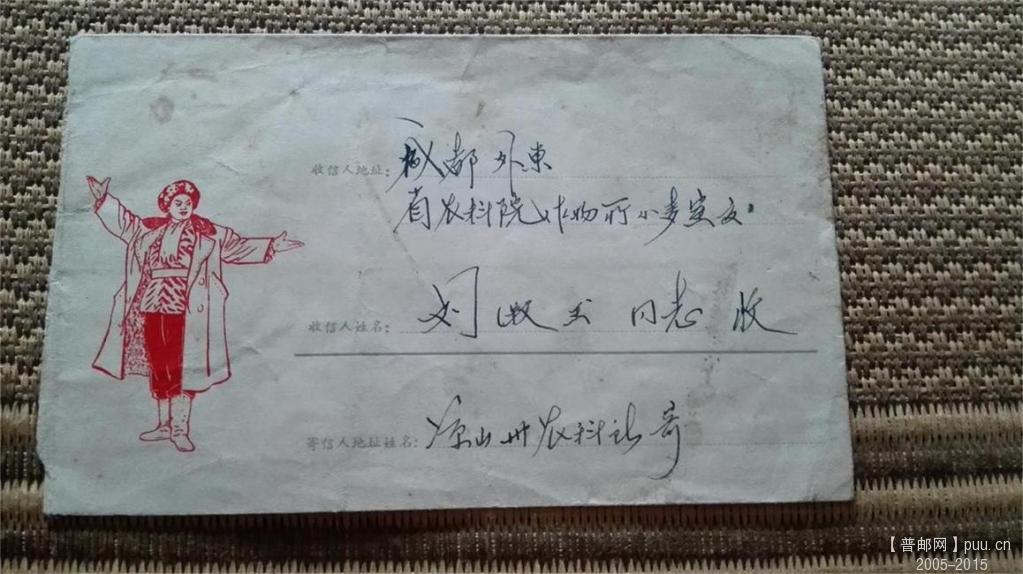 收信人地址: 成都外东
省农科院作物所小麦室交
收信人姓名: 刘淑玉同志收
寄信人地址姓名: 凉山州农科站寄
【普邮网】puu.cn
2005-2015